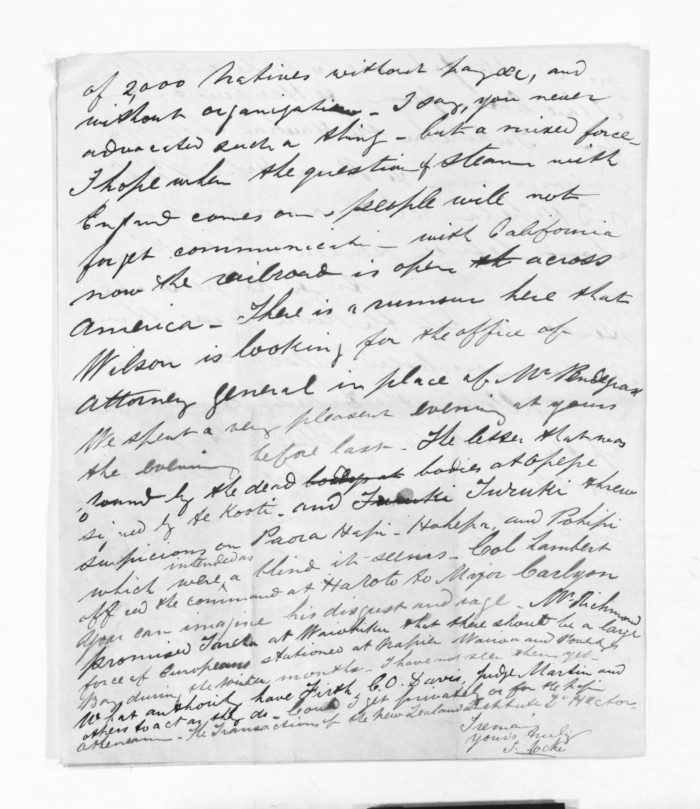 of 2,000 Natives without pay &c, and
without organization - I say, you never
advocated such a thing - but a mixed force -
I hope when the question of steam with
England comes on, people will not
forget communicati- with California
now the railroad is open across
America - There is a rumour here that
Wilson is looking for the office of
Attorney general in place of Mr Pendegrast
We spent a very pleasant evening at yours
the evening before last - The letter that was
found by the dead bodies at Opepe
signed by Te Kooti - and Turuki threw
suspicions on Paora Hapi - Hohepa, and Pohipi
which were intended as a blind it seems - Col Lambert
offered the command at Haroto to Major Carlyon
you can imagine his disgust and rage - Mr Richmond
promised Tareha at Waiohiki that there should be a large
force of Europeans stationed at Napier Wairoa and Poverty
Bay during the winter months - I have not seen them yet -
What authority have Firth, C.O. Davis, Judge Martin and
others to act as they do - Could you get privately or for the
Athenaeum - The Transactions of the New Zealand Institute Dr Hector -
I remain
Yours truly
S. Locke